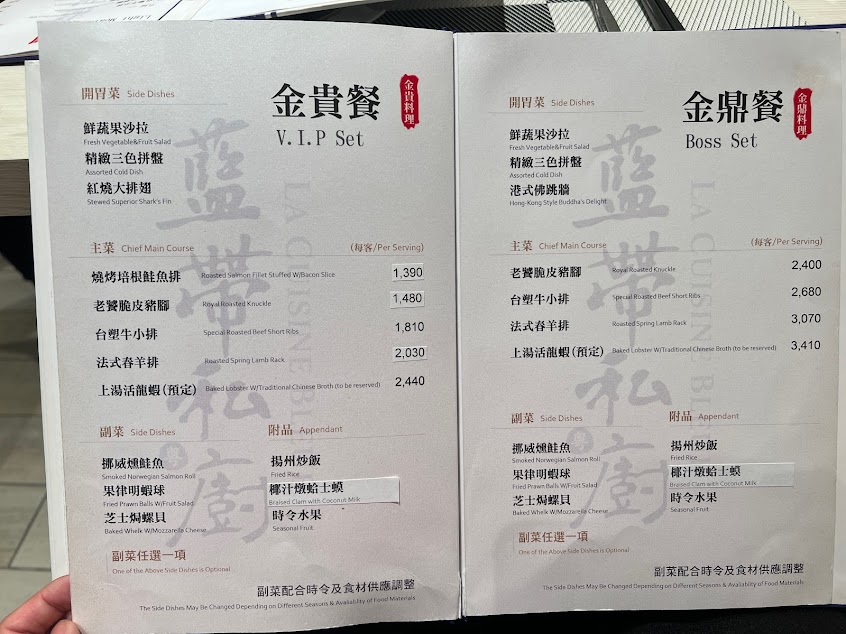 開胃菜 Side Dishes
金貴餐
金貴料理
V.I.P Set
鮮蔬果沙拉
Fresh Vegetable&Fruit Salad
精緻三色拼盤
Assorted Cold Dish
紅燒大排翅
Stewed Superior Shark's Fin
主菜 Chief Main Course (每客/Per Serving)
燒烤培根鮭魚排 Roasted Salmon Fillet Stuffed W/Bacon Slice 1,390
老饕脆皮豬腳 Royal Roasted Knuckle 1,480
台塑牛小排 Special Roasted Beef Short Ribs 1,810
法式春羊排 Roasted Spring Lamb Rack 2,030
上湯活龍蝦(預定) Baked Lobster W/Traditional Chinese Broth (to be reserved) 2,440
副菜 Side Dishes
挪威燻鮭魚
Smoked Norwegian Salmon Roll
果律明蝦球
Fried Prawn Balls W/Fruit Salad
芝士焗螺貝
Baked Whelk W/Mozzarella Cheese
副菜任選一項
One of the Above Side Dishes is Optional
附品 Appendant
揚州炒飯
Fried Rice
椰汁燉蛤士蟆
Braised Clam with Coconut Milk
時令水果
Seasonal Fruit
副菜配合時令及食材供應調整
The Side Dishes May Be Changed Depending on Different Seasons & Availability of Food Materials
藍帶私廚
LA CUISINE BL
開胃菜 Side Dishes
金鼎餐
金鼎料理
Boss Set
鮮蔬果沙拉
Fresh Vegetable&Fruit Salad
精緻三色拼盤
Assorted Cold Dish
港式佛跳牆
Hong-Kong Style Buddha's Delight
主菜 Chief Main Course (每客/Per Serving)
老饕脆皮豬腳 Royal Roasted Knuckle 2,400
台塑牛小排 Special Roasted Beef Short Ribs 2,680
法式春羊排 Roasted Spring Lamb Rack 3,070
上湯活龍蝦(預定) Baked Lobster W/Traditional Chinese Broth (to be reserved) 3,410
副菜 Side Dishes
挪威燻鮭魚
Smoked Norwegian Salmon Roll
果律明蝦球
Fried Prawn Balls W/Fruit Salad
芝士焗螺貝
Baked Whelk W/Mozzarella Cheese
副菜任選一項
One of the Above Side Dishes is Optional
附品 Appendant
揚州炒飯
Fried Rice
椰汁燉蛤士蟆
Braised Clam with Coconut Milk
時令水果
Seasonal Fruit
副菜配合時令及食材供應調整
The Side Dishes May Be Changed Depending on Different Seasons & Availability of Food Materials
藍帶私廚
LA CUISINE BL